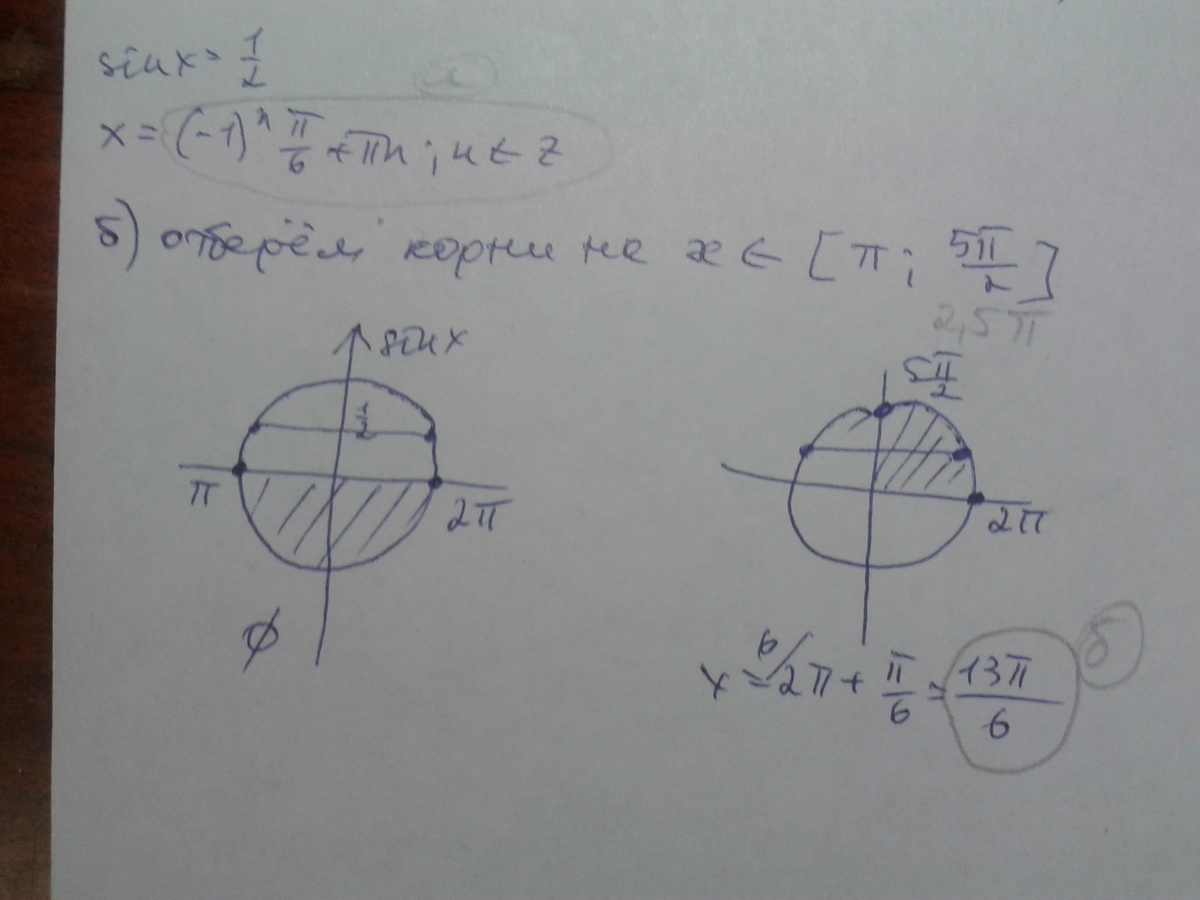 sin x = 1/2
а
x = (-1)^n π/6 + πn ; n ∈ Z
б) отберём корни на x ∈ [π ; 5π/2]
2,5π
sin x
5π/2
1/2
π
2π
2π
∅
б
x = 2π + π/6 = 13π/6
6/